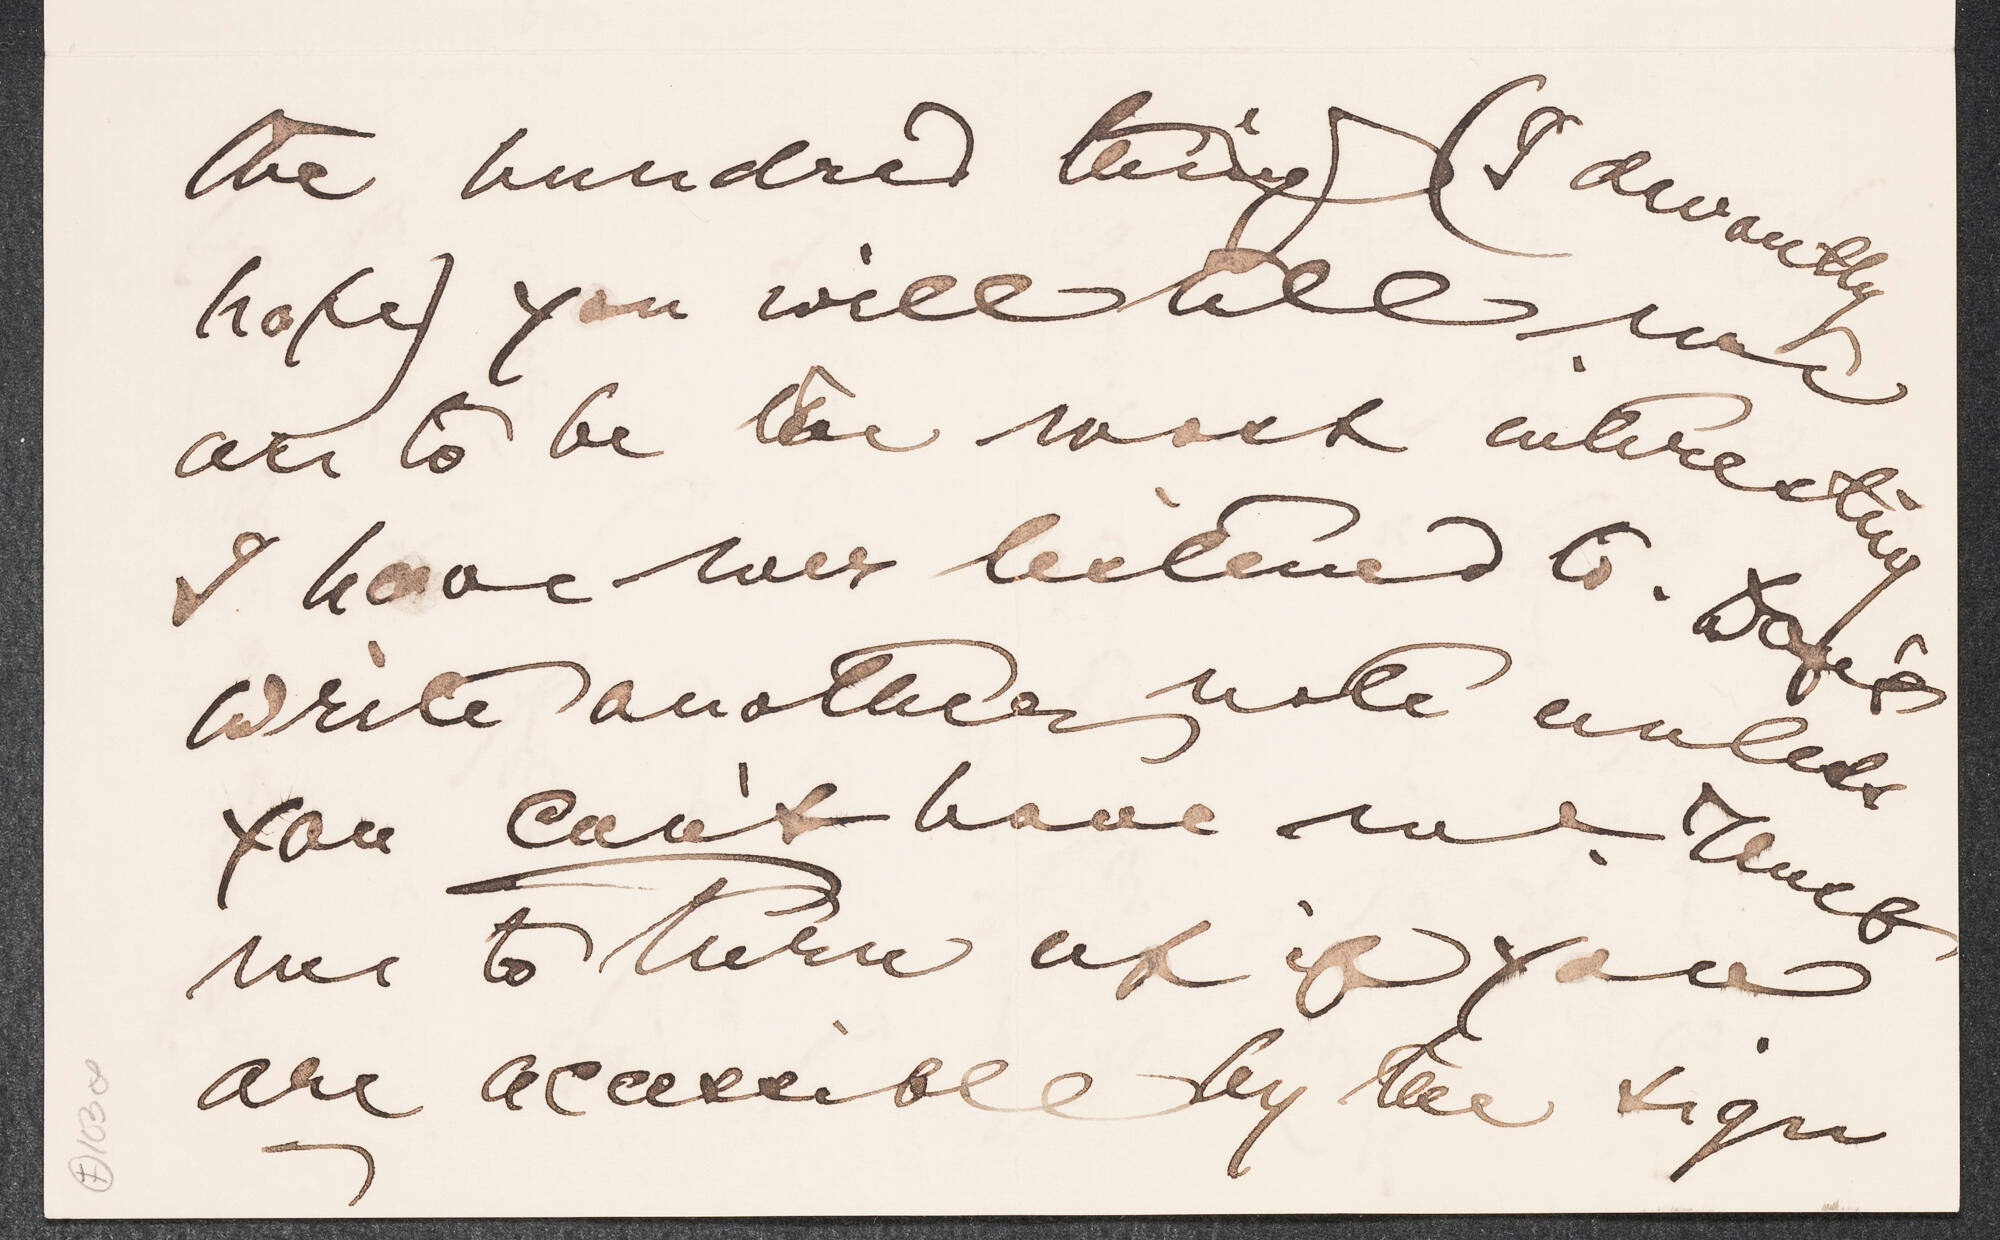 the hundred things (I devoutly
hope) you will tell me
are to be the most interesting
I have ever listened to. Don't
write another note unless
you can't have me. Trust
me to turn up if you
are accessible by the sign
1038